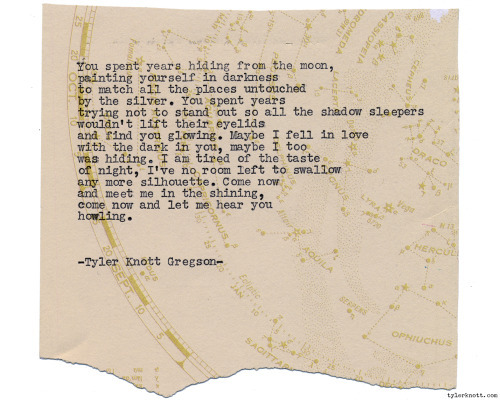 You spent years hiding from the moon,
painting yourself in darkness
to match all the places untouched
by the silver. You spent years
trying not to stand out so all the shadow sleepers
wouldn't lift their eyelids
and find you glowing. Maybe I fell in love
with the dark in you, maybe I too
was hiding. I am tired of the taste
of night, I've no room left to swallow
any more silhouette. Come now
and meet me in the shining,
come now and let me hear you
howling.
-Tyler Knott Gregson-
25
20
OCT.
SEPT. 10
5
AQUILA
DRACO
HERCUL
OPHIUCHUS
SAGITTA
Vega
CASSIOPEIA
tylerknott.com